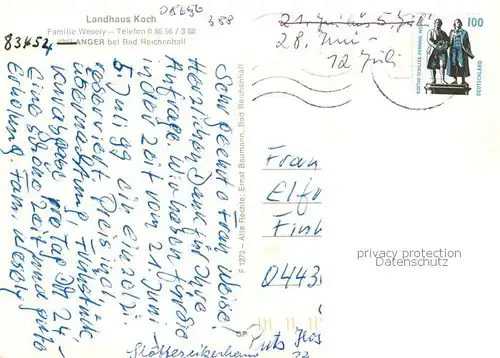 08656
388
Landhaus Koch
Familie Wesely – Telefon 0 86 56 / 3 88
83454 ANGER bei Bad Reichenhall
Sehr geehrte Frau Weise!
Herzlichen Dank für Ihre
Anfrage. Wir haben für Sie
in der Zeit vom 21. Juni -
5. Juli 99 ein Einzelzi.
reserviert. Preis incl.
Übernachtung, Frühstück,
Kurabgabe pro Tag DM 24,-
Eine schöne Zeit und gute
Erholung. Fam. Wesely
F 1273 – Alle Rechte: Ernst Baumann, Bad Reichenhall
21. Juni bis 5. Juli
28. Juni -
12 Juli
100
GOETHE-SCHILLER-DENKMAL
DEUTSCHLAND
Frau
0443
privacy protection
Datenschutz